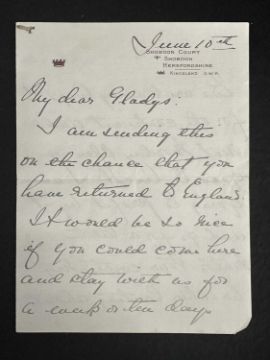 June 10th
SHOBDON COURT
SHOBDON
HEREFORDSHIRE
KINGSLAND G.W.R.
My dear Gladys.
I am sending this
on the chance that you
have returned to England.
It would be so nice
if you could come here
and stay with us for
a week or ten days